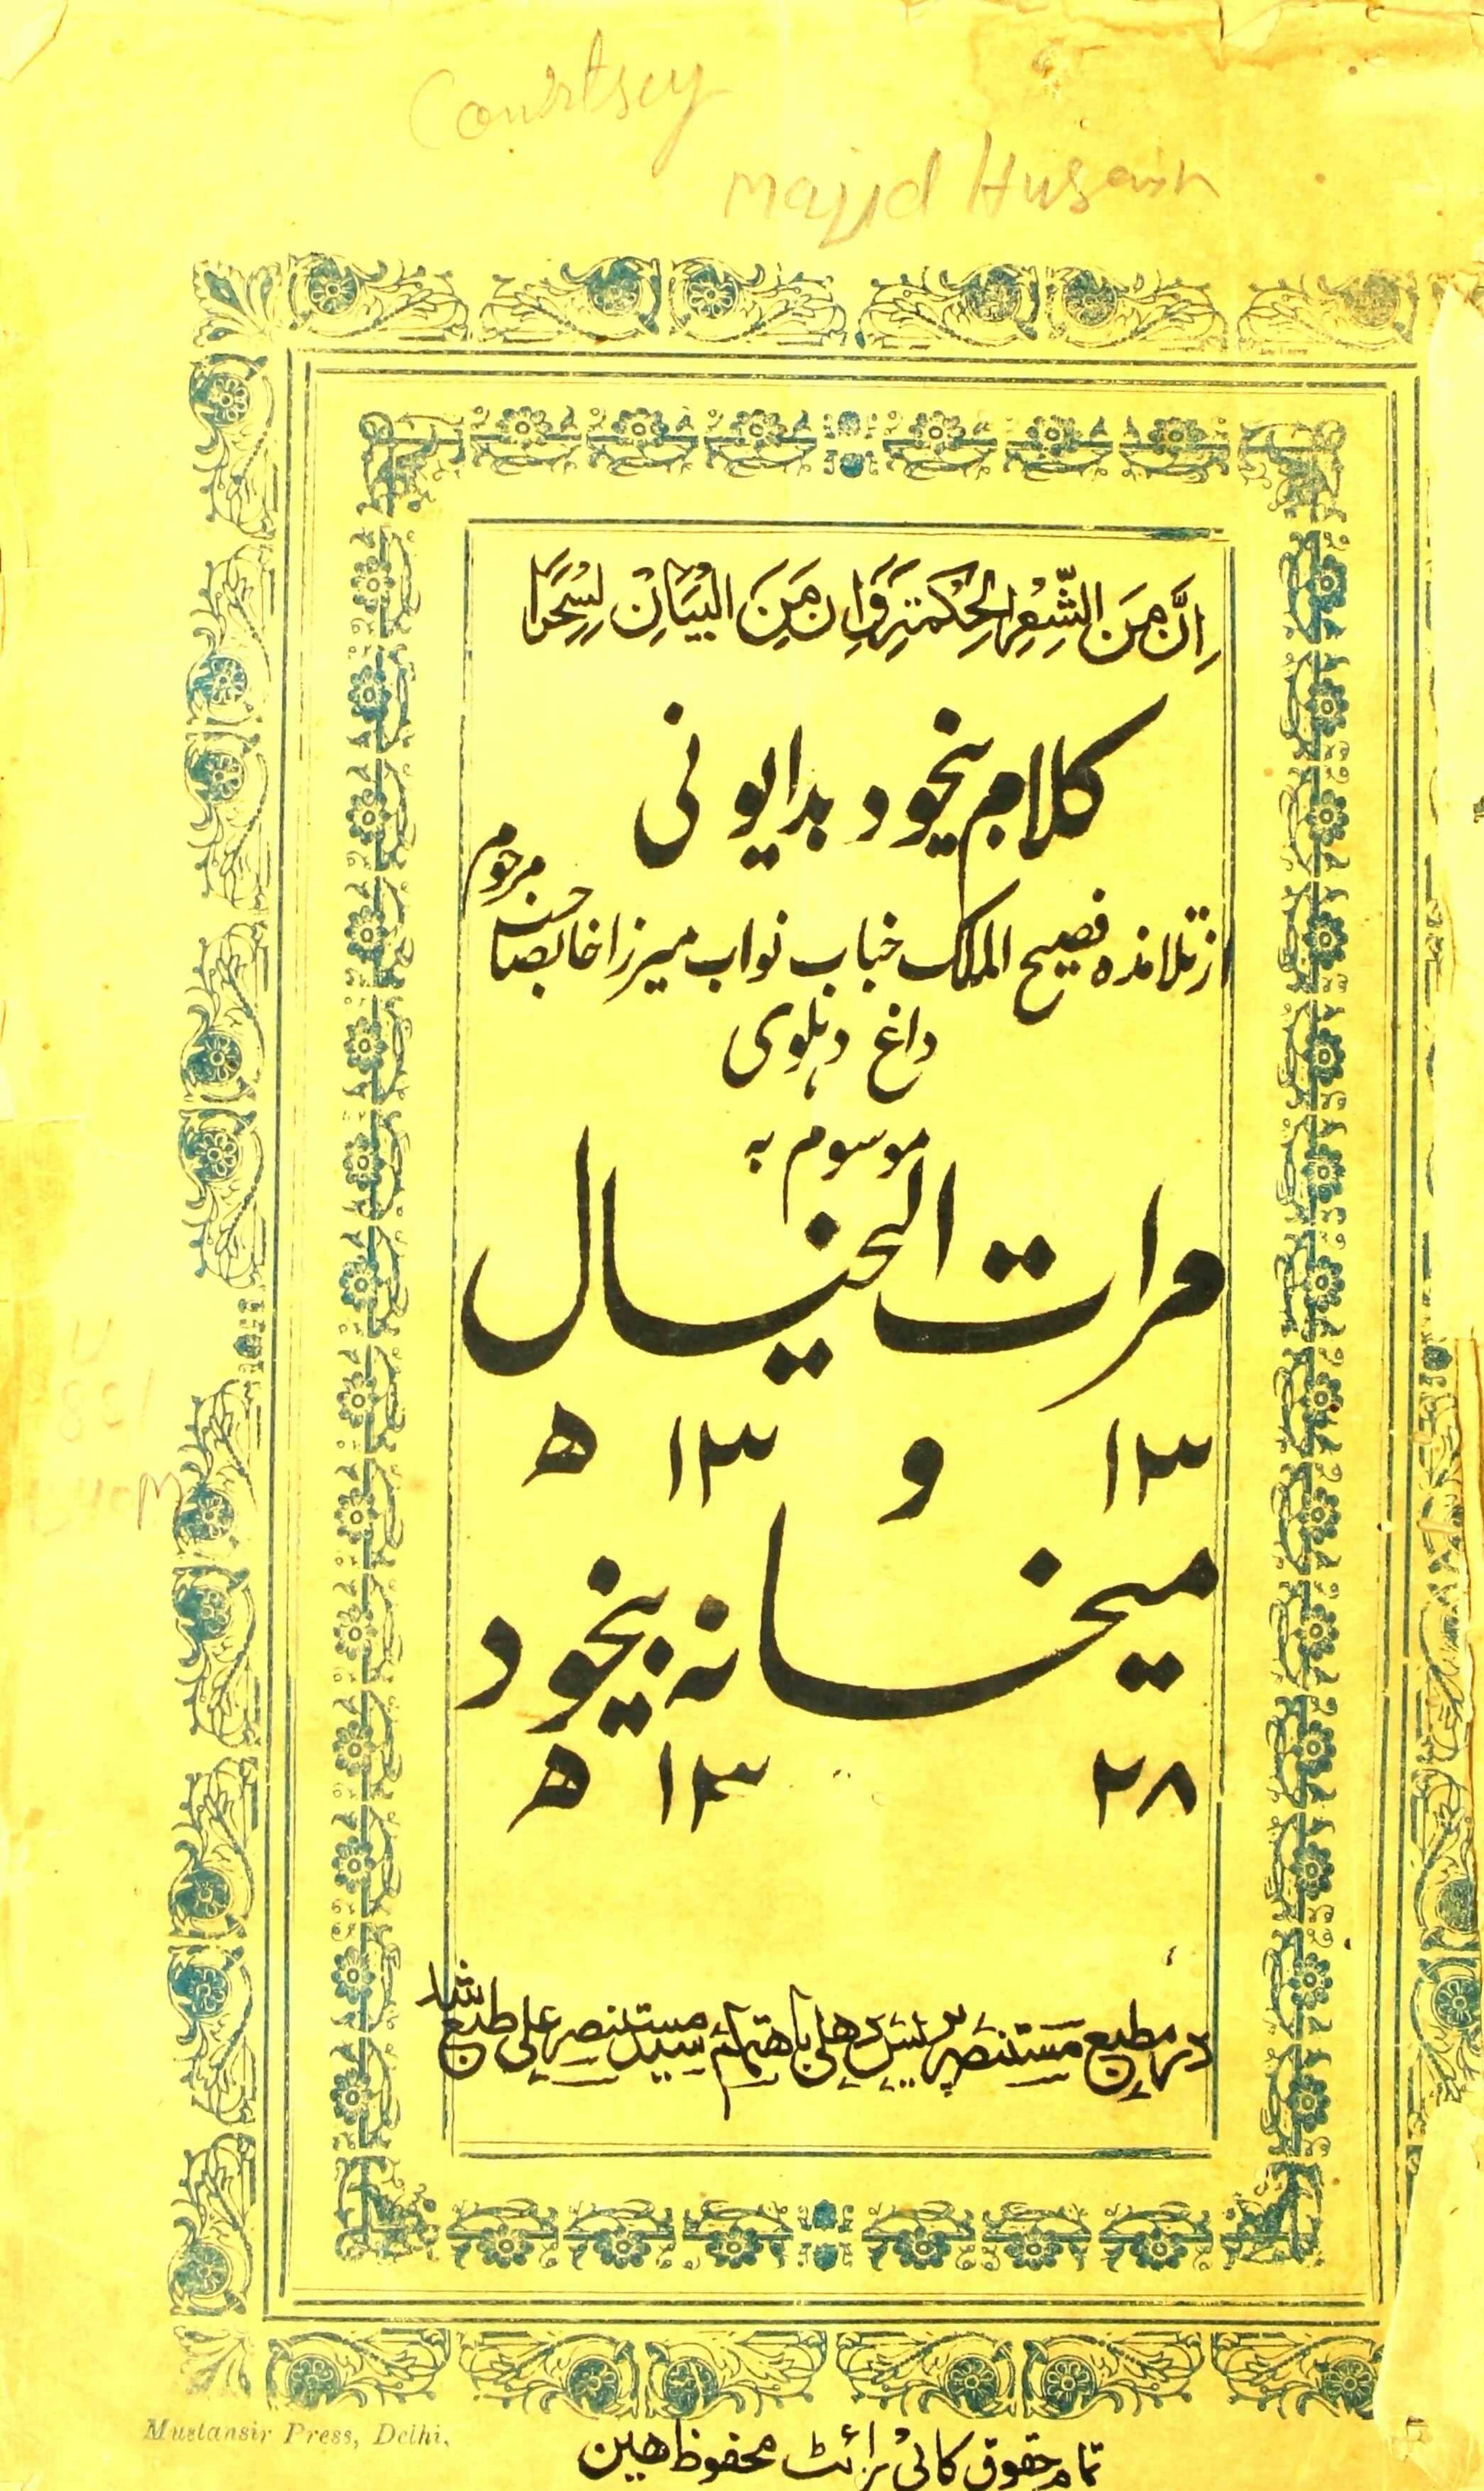 Courtsey
Majid Husain
اِنَّ مِنَ الشِّعْرِ الحِکْمَتِہ وَاِن مِنَ البَیَانِ لَسِحْرًا
کلام بیخود بدایونی
از تلامذہ فصیح الملک جناب نواب میرزا خانصاحب مرحوم
داغ دہلوی
موسوم بہ
مرات الخیال
۱۳ و ۱۳ ھ
میخانہ بیخود
۲۸ ۱۳ ھ
در مطبع مستنصر پریس دھلی باھتمام سید مستنصر علی طبع شد
Mustansir Press, Delhi.
تمام حقوق کاپی رائٹ محفوظ ھین